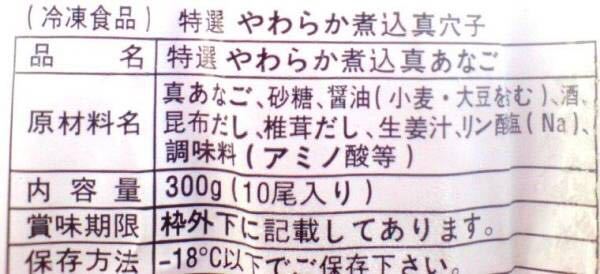 (冷凍食品) 特選 やわらか煮込真穴子
品名 特選 やわらか煮込真あなご
原材料名 真あなご、砂糖、醤油(小麦・大豆を含む)、酒、
昆布だし、椎茸だし、生姜汁、リン酸塩(Na)、
調味料(アミノ酸等)
内容量 300g(10尾入り)
賞味期限 枠外下に記載してあります。
保存方法 -18℃以下でご保存下さい。